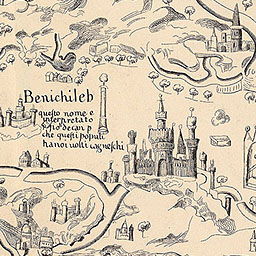 Benichileb
questo nome e
interpretato
de can p
che questi populi
hanoi uolti cagneschi